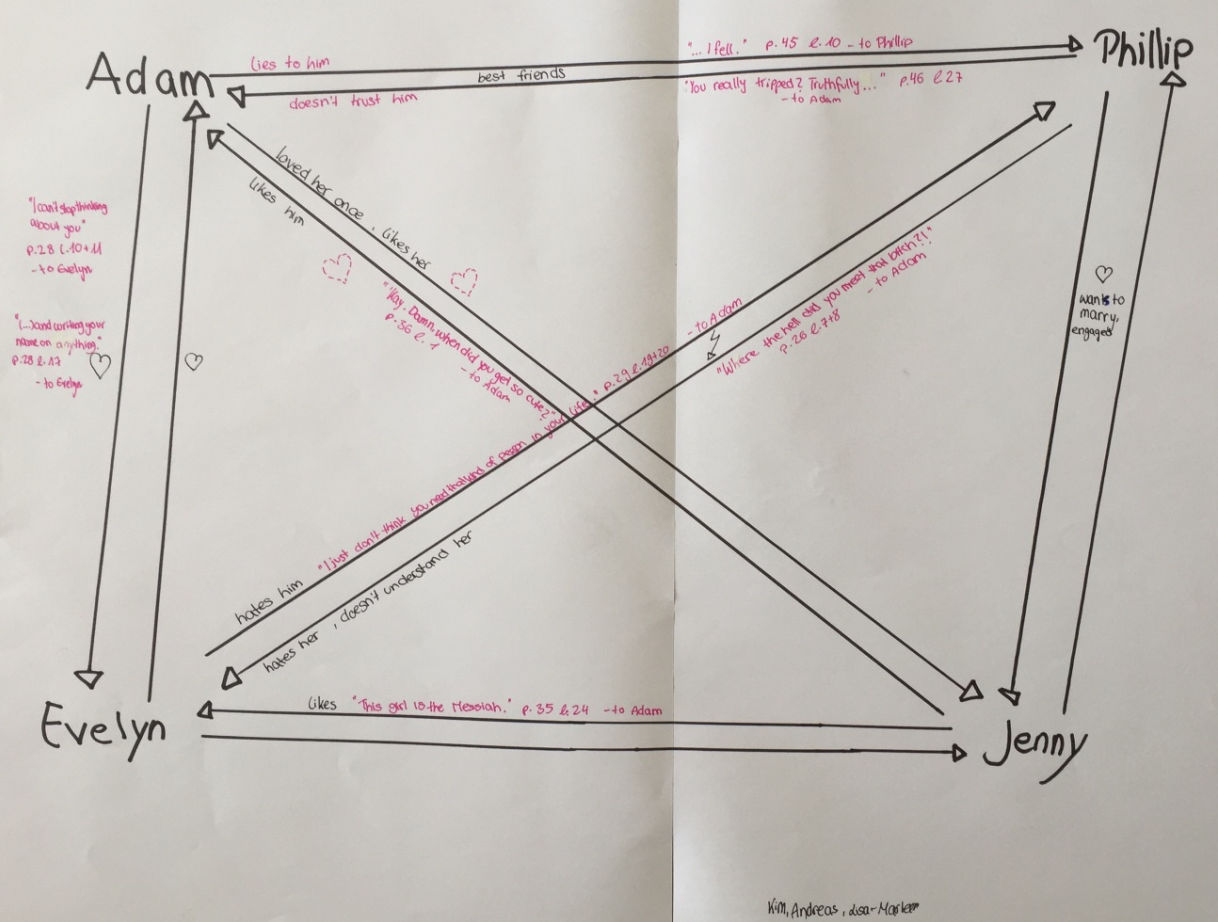 Adam
Phillip
lies to him
"... I fell." p.45 l.10 - to Phillip
best friends
doesn't trust him
"You really tripped? Truthfully..." p.46 l.27
- to Adam
loved her once, likes her
likes him
"I can't stop thinking
about you"
p.28 l.10+11
- to Evelyn
"(...) and writing your
name on anything."
p.28 l.17
- to Evelyn
"Kay. Damn, when did you get so cute?"
p.36 l.1
- to Adam
"Where the hell did you meet that bitch?!"
p.26 l.7+8
- to Adam
wants to
marry,
engaged
hates him "I just don't think you need that kind of person in your life." p.29 l.19+20 - to Adam
hates her, doesn't understand her
likes "This girl is the Messiah." p.35 l.24 - to Adam
Evelyn
Jenny
Kim, Andreas, Lisa-Marleen